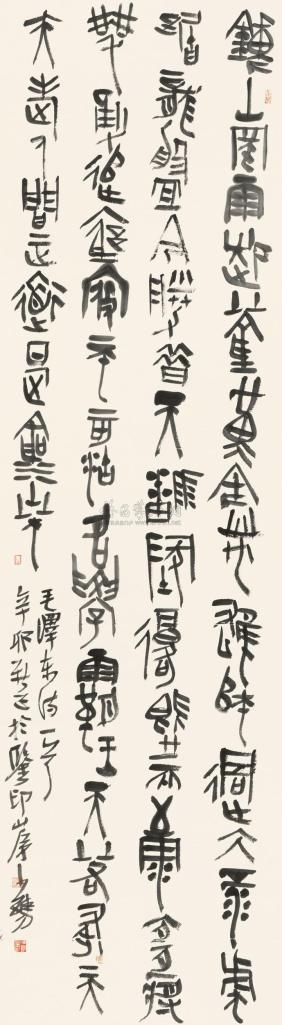 鍾山風雨起蒼黃百萬雄師過大江虎
踞龍盤今勝昔天翻地覆慨而慷宜將
剩勇追窮寇不可沽名學霸王天若有情天
亦老人間正道是滄桑
毛澤東詩一首
辛卯於鑒印山房